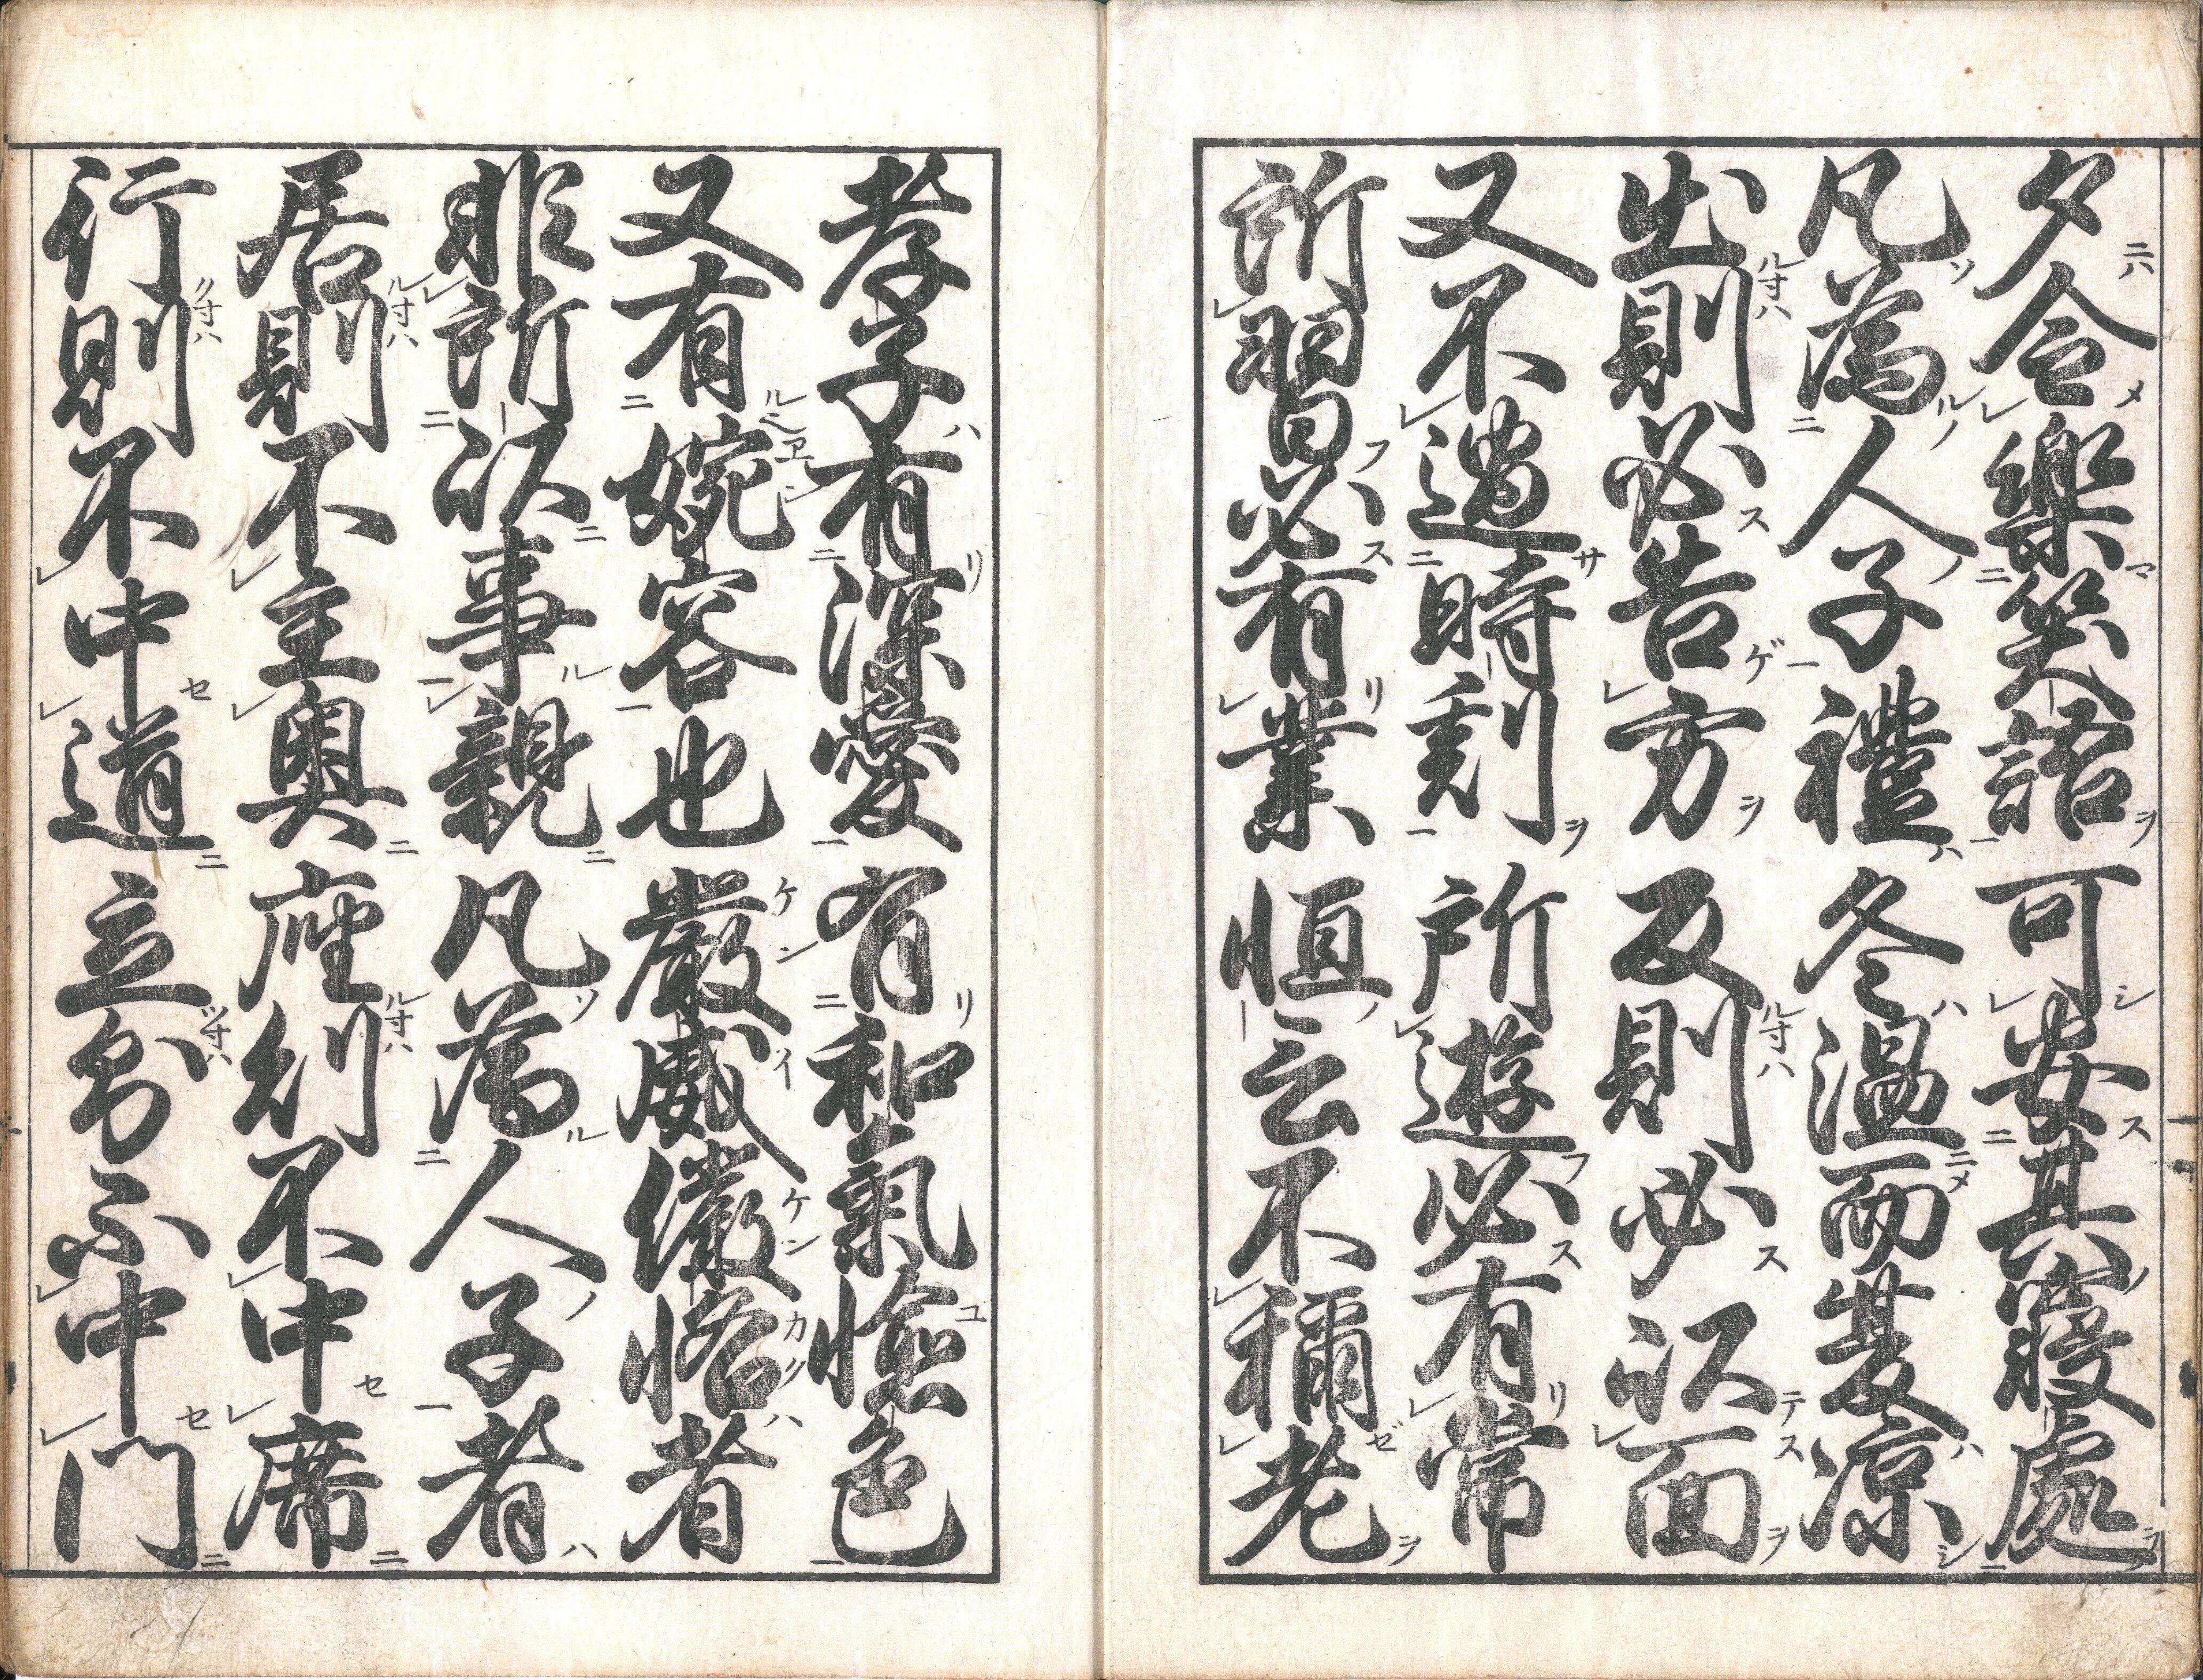 夕令樂笑語可安其寢處
凡為人子禮冬温而夏凉
出則必告方反則必以面
又不過時刻所遊必有常
所習必有業恒云不稱老
孝子有深愛有和氣愉色
又有婉容也嚴威儼恪者
非所以事親凡為人子者
居則不主奥座則不中席
行則不中道立則不中門